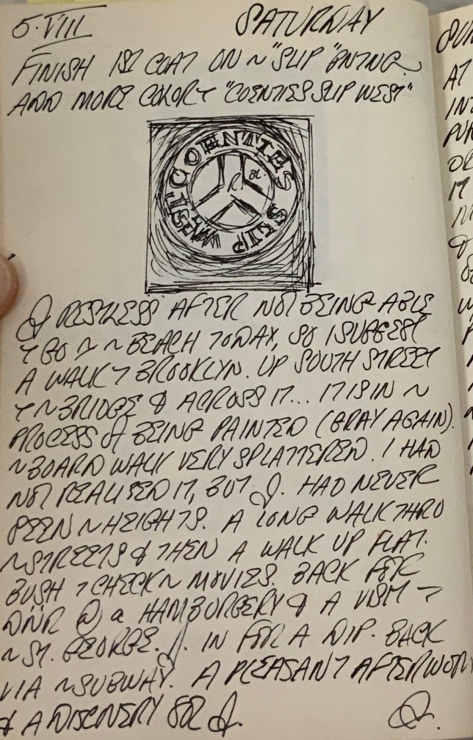 5·VIII SATURDAY
FINISH 1ST COAT ON ~ "SLIP" PNTNG.
ADD MORE COLOR T "COENTIES SLIP WEST"
COENTIES SLIP WEST
J RESTLESS AFTER NOT BEING ABLE
T GO T ~ BEACH TODAY, SO I SUGGEST
A WALK T BROOKLYN. UP SOUTH STREET
T ~ BRIDGE & ACROSS IT... IT IS IN ~
PROCESS of BEING PAINTED (GRAY AGAIN).
~ BOARD WALK VERY SPLATTERED. I HAD
NOT REALISED IT, BUT J. HAD NEVER
SEEN ~ HEIGHTS. A LONG WALK THRO
~ STREETS & THEN A WALK UP FLAT-
BUSH T CHECK ~ MOVIES. BACK FOR
DNR @ a HAMBURGERY & A VISIT T
~ ST. GEORGE. J. IN FOR A DIP. BACK
VIA ~ SUBWAY. A PLEASANT AFTERNOON
& A DISCOVERY FOR J.